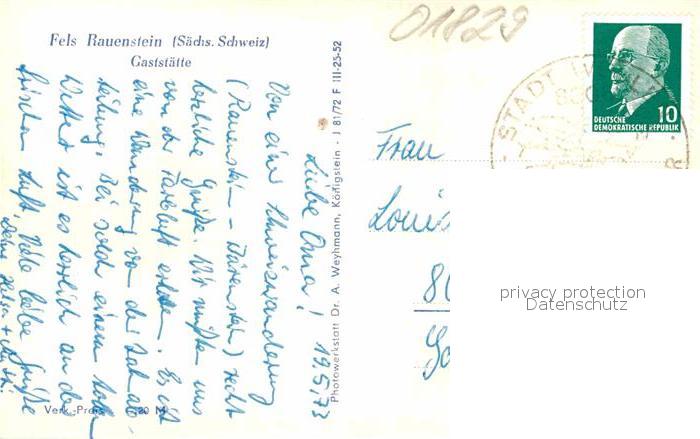 Fels Rauenstein (Sächs. Schweiz)
Gaststätte
01829
Liebe Oma! 19.5.73
Von einer Schweizwanderung
(Rauenstein – Bärenstein) recht
herzliche Grüße. Wir mußten uns
von der erholen. Es ist
eine Wanderung von der Zah ab-
teilung. Bei solch einem tollen
Wetter ist es herrlich an der
frischen Luft. Viele liebe Grüße
Deine
Verk.-Preis 0.20 M
Photowerkstatt Dr. A. Weyhmann, Königstein - J 81/72 F III-23-52
STADT
DEUTSCHE 10
DEMOKRATISCHE REPUBLIK
Frau
Louis
80
privacy protection
Datenschutz